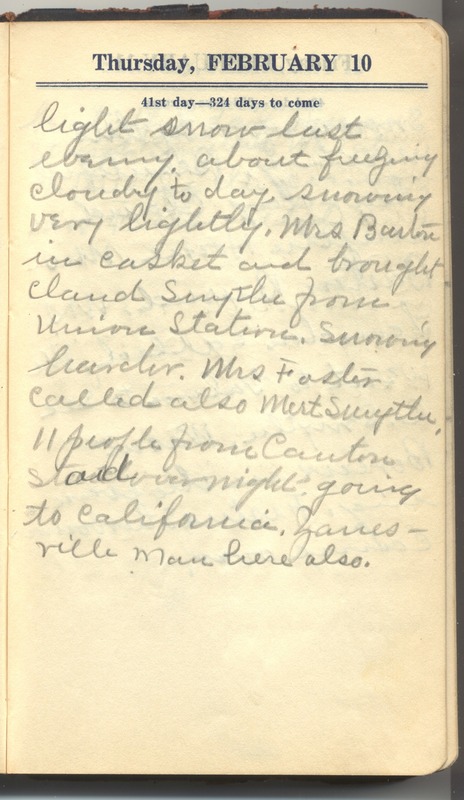 Thursday, FEBRUARY 10
41st day—324 days to come
light snow last
evening. about freezing
cloudy to day, snowing
very lightly. Mrs Barton
in casket and brought
Claud Smythe from
Union Station. Snowing
harder. Mrs Foster
called also Mert Smythe,
11 people from Canton
staid over night going
to California. Zanes-
ville man here also.